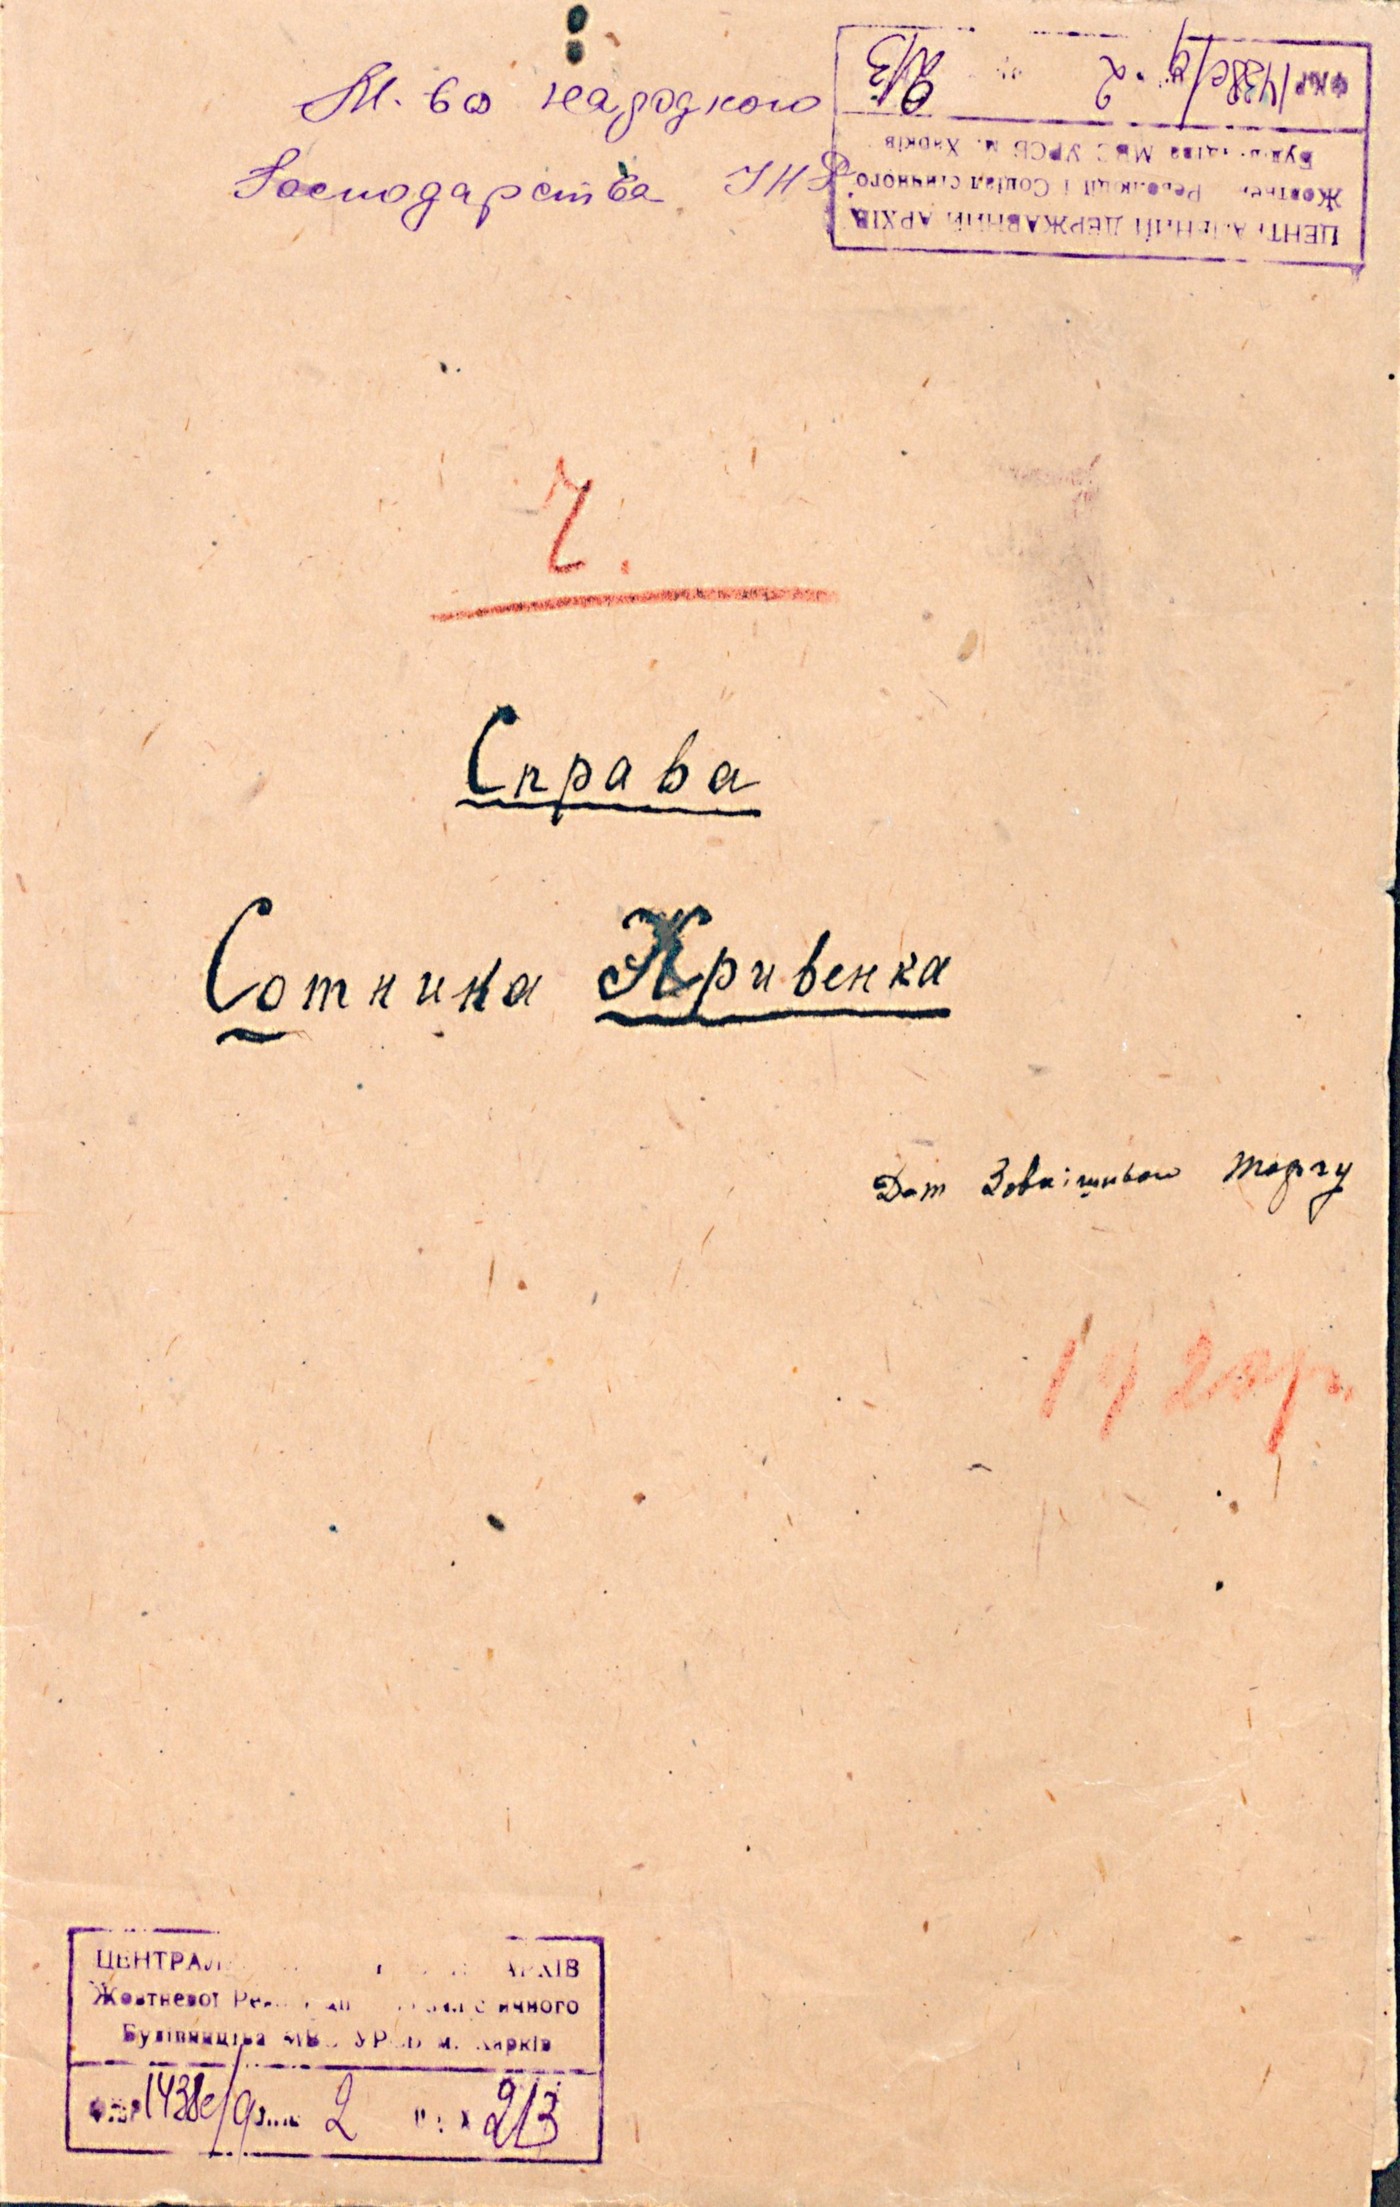 М-во народного
Господарства УНР
ЦЕНТРАЛЬНИЙ ДЕРЖАВНИЙ АРХІВ
Жовтнев Революції і Соціалістичного
Будівництва МВС УРСР м. Харків
1438с/9 2 213
Справа
Сотника Кривенка
Деп Зовнішньої Торгу
1920 р.
ЦЕНТРАЛ АРХІВ
Жовтневої Ре ції ичного
Будівництва МВС УРСР м. Харків
1438с/9 2 213